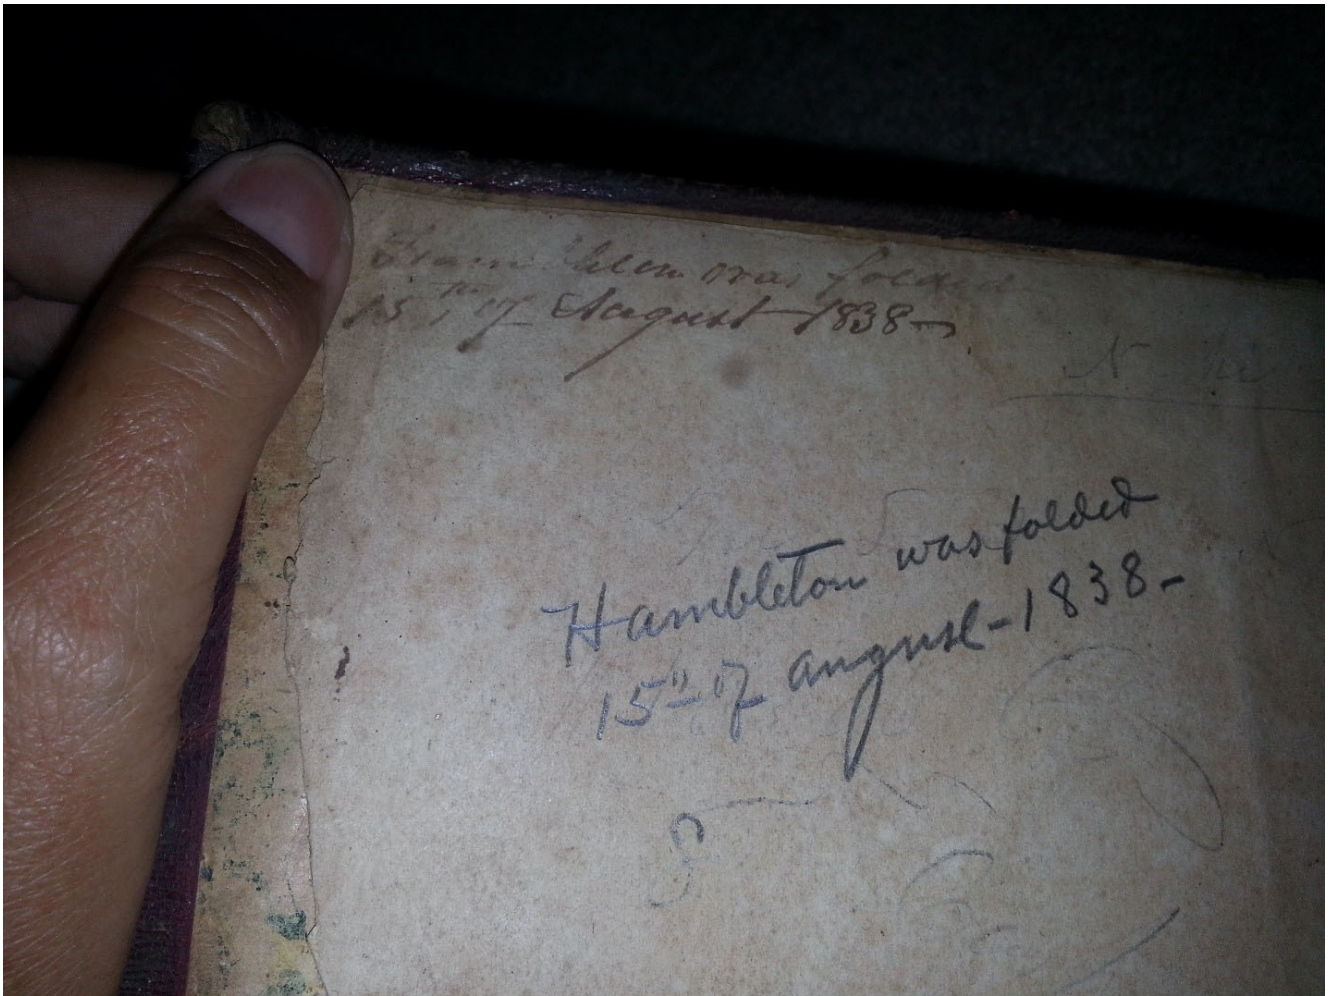 was folded
15th 17 August 1838-
Hambleton was folded
15th 17 august-1838-